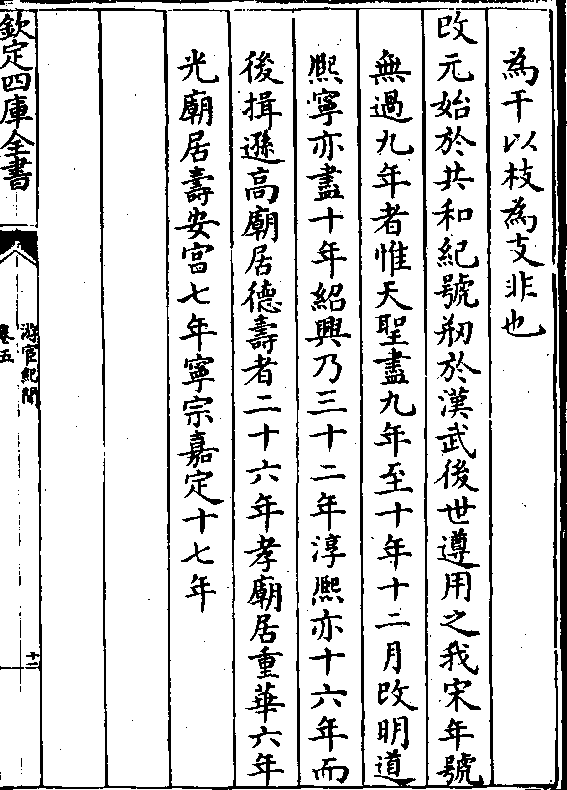 為干以枝為支非也
改元始於共和紀號刱於漢武後世遵用之我宋年號
無過九年者惟天聖盡九年至十年十二月改明道
熈寧亦盡十年紹興乃三十二年淳熈亦十六年而
後揖遜高廟居德壽者二十六年孝廟居重華六年
光廟居壽安宫七年寧宗嘉定十七年
欽定四庫全書
游宦紀聞
卷五
十二